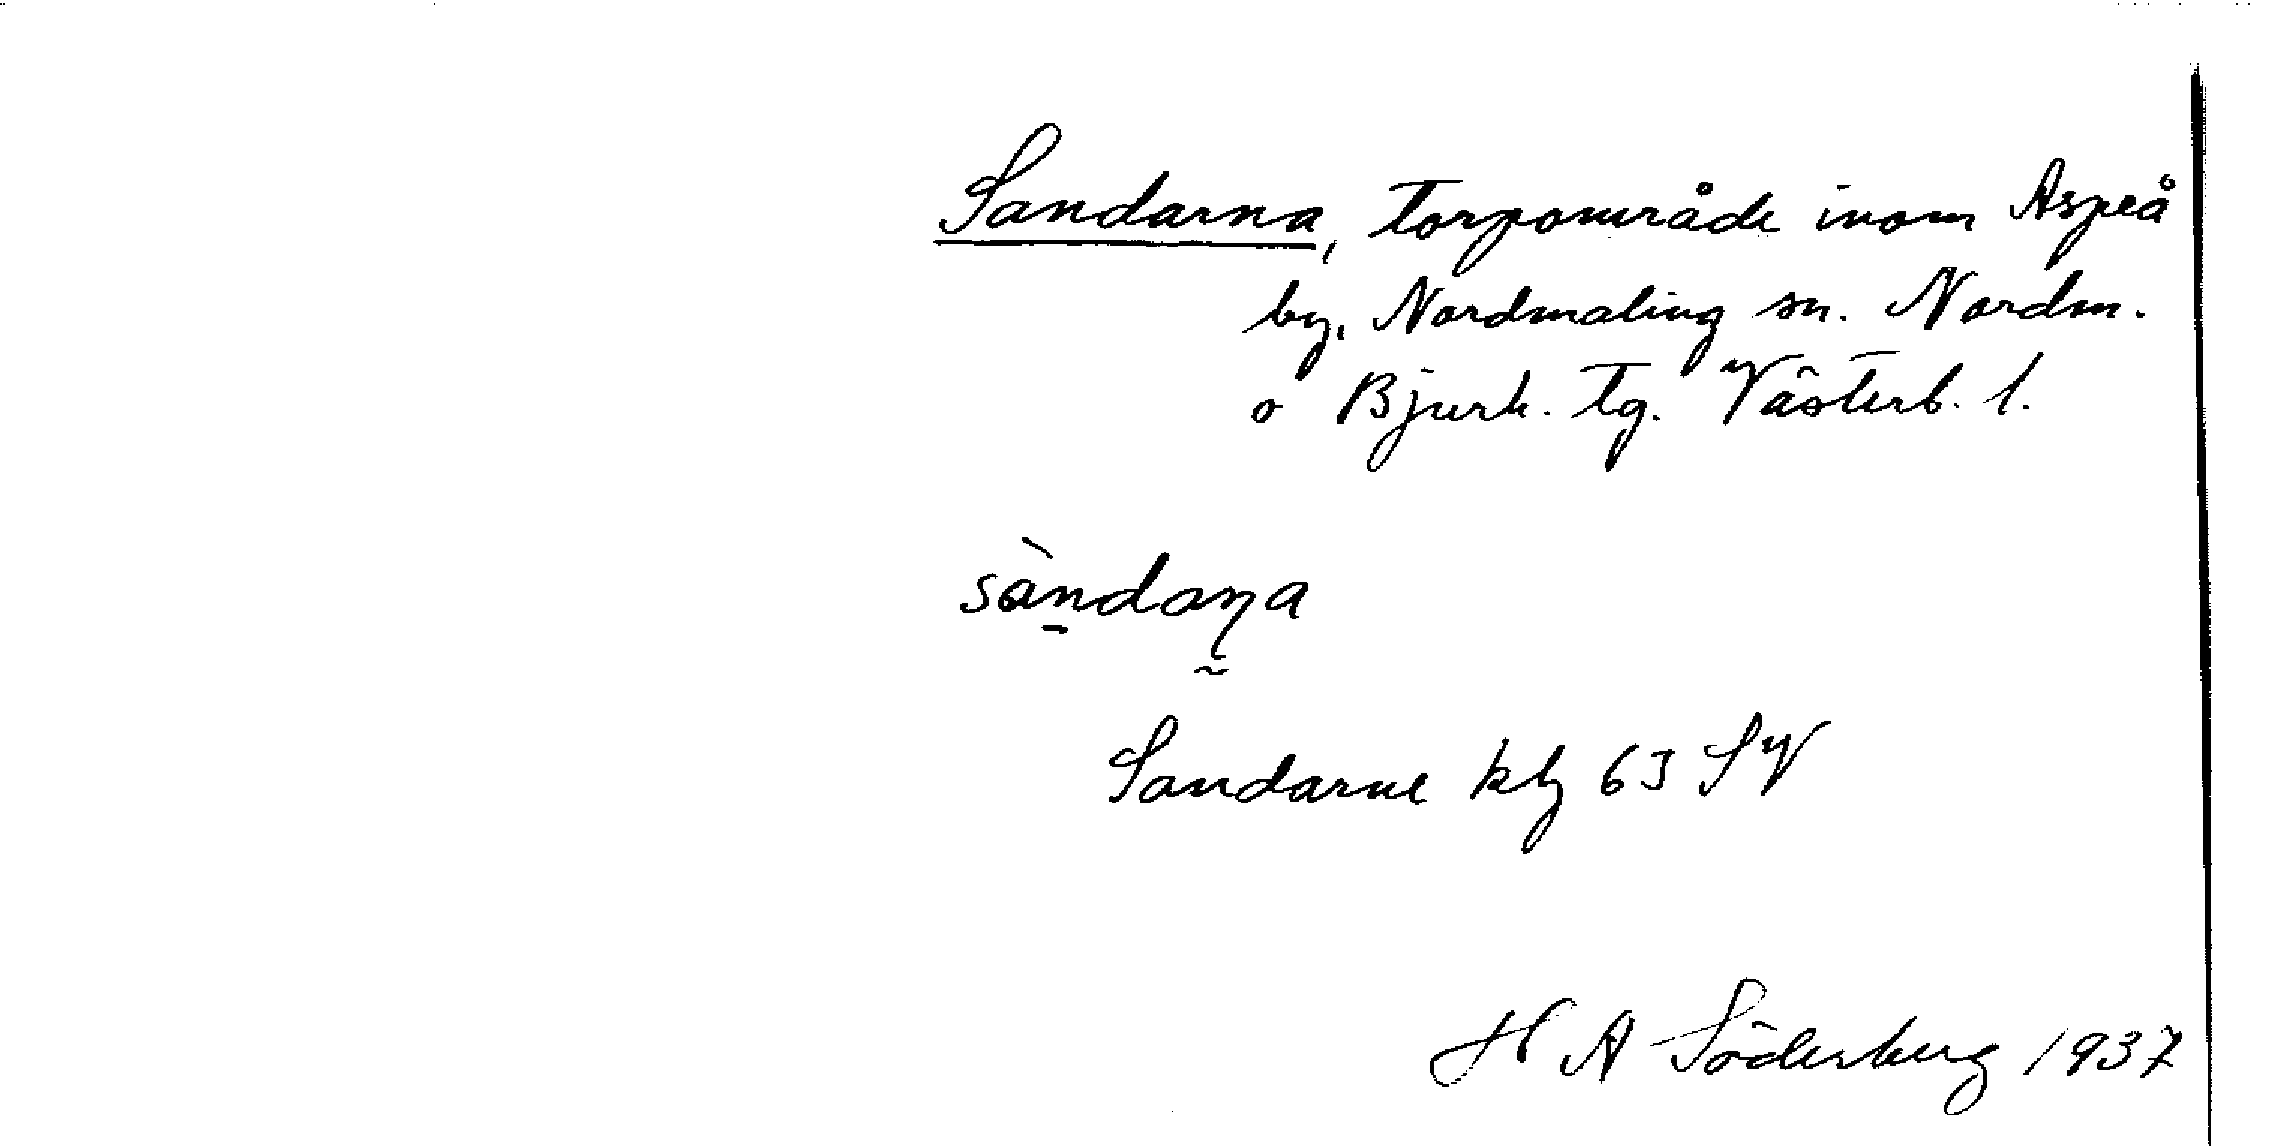 Sandarna, torpområde inom Aspeå
by, Nordmaling sn. Nordm.
o Bjurh. tg. Västerb. l.
sàndaɳa
Sandarne kbl 63 SV
H A Söderberg 1937